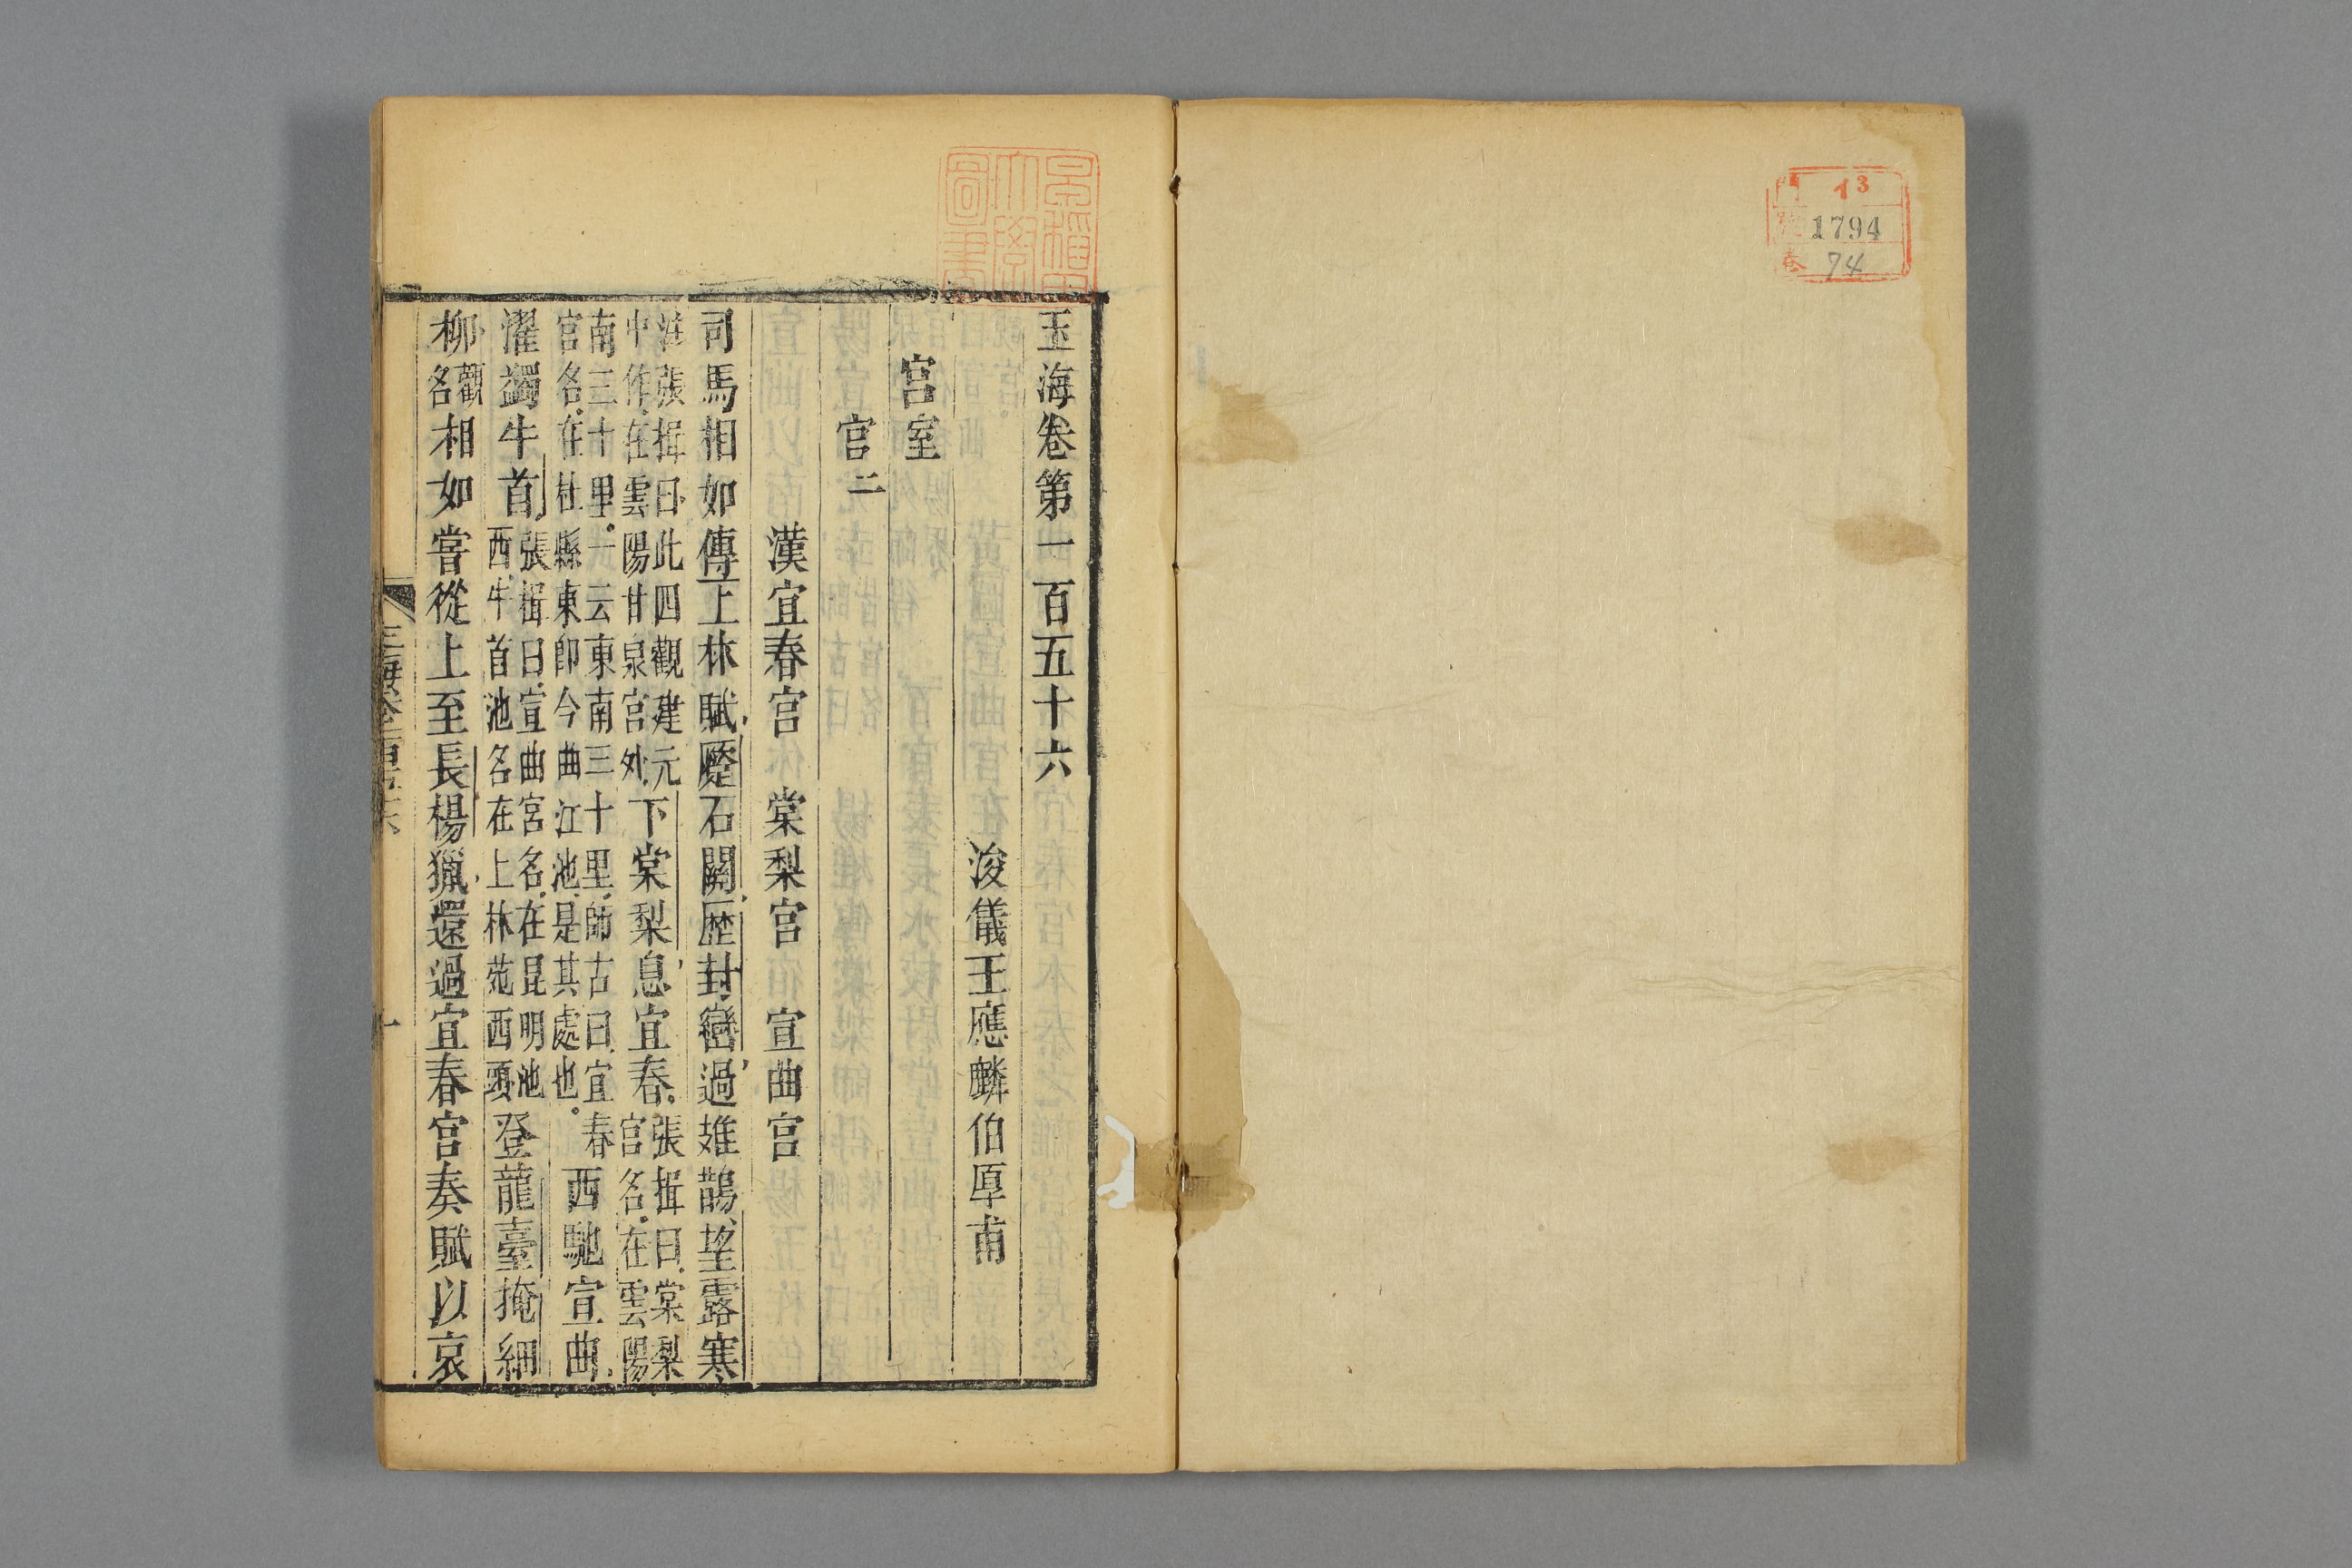 門 イ3
號 1794
卷 74
玉海卷第一百五十六
浚儀王應麟伯厚甫
宮室
宮二
漢宜春宮 棠梨宮 宣曲宮
司馬相如傳上林賦蹷石闕歷封巒過鳷鵲望露寒
注張揖曰此四觀建元中作在雲陽甘泉宮外下棠梨息宜春張揖曰棠梨宮名在雲陽
南三十里一云東南三十里師古曰宜春宮名在杜縣東即今曲江池是其處也西馳宣曲
濯鷁牛首張揖曰宣曲宮名在昆明池西牛首池名在上林苑西頭登龍臺掩細
柳觀名相如嘗從上至長楊獵還過宜春宮奏賦以哀
玉海卷一百五十六
一